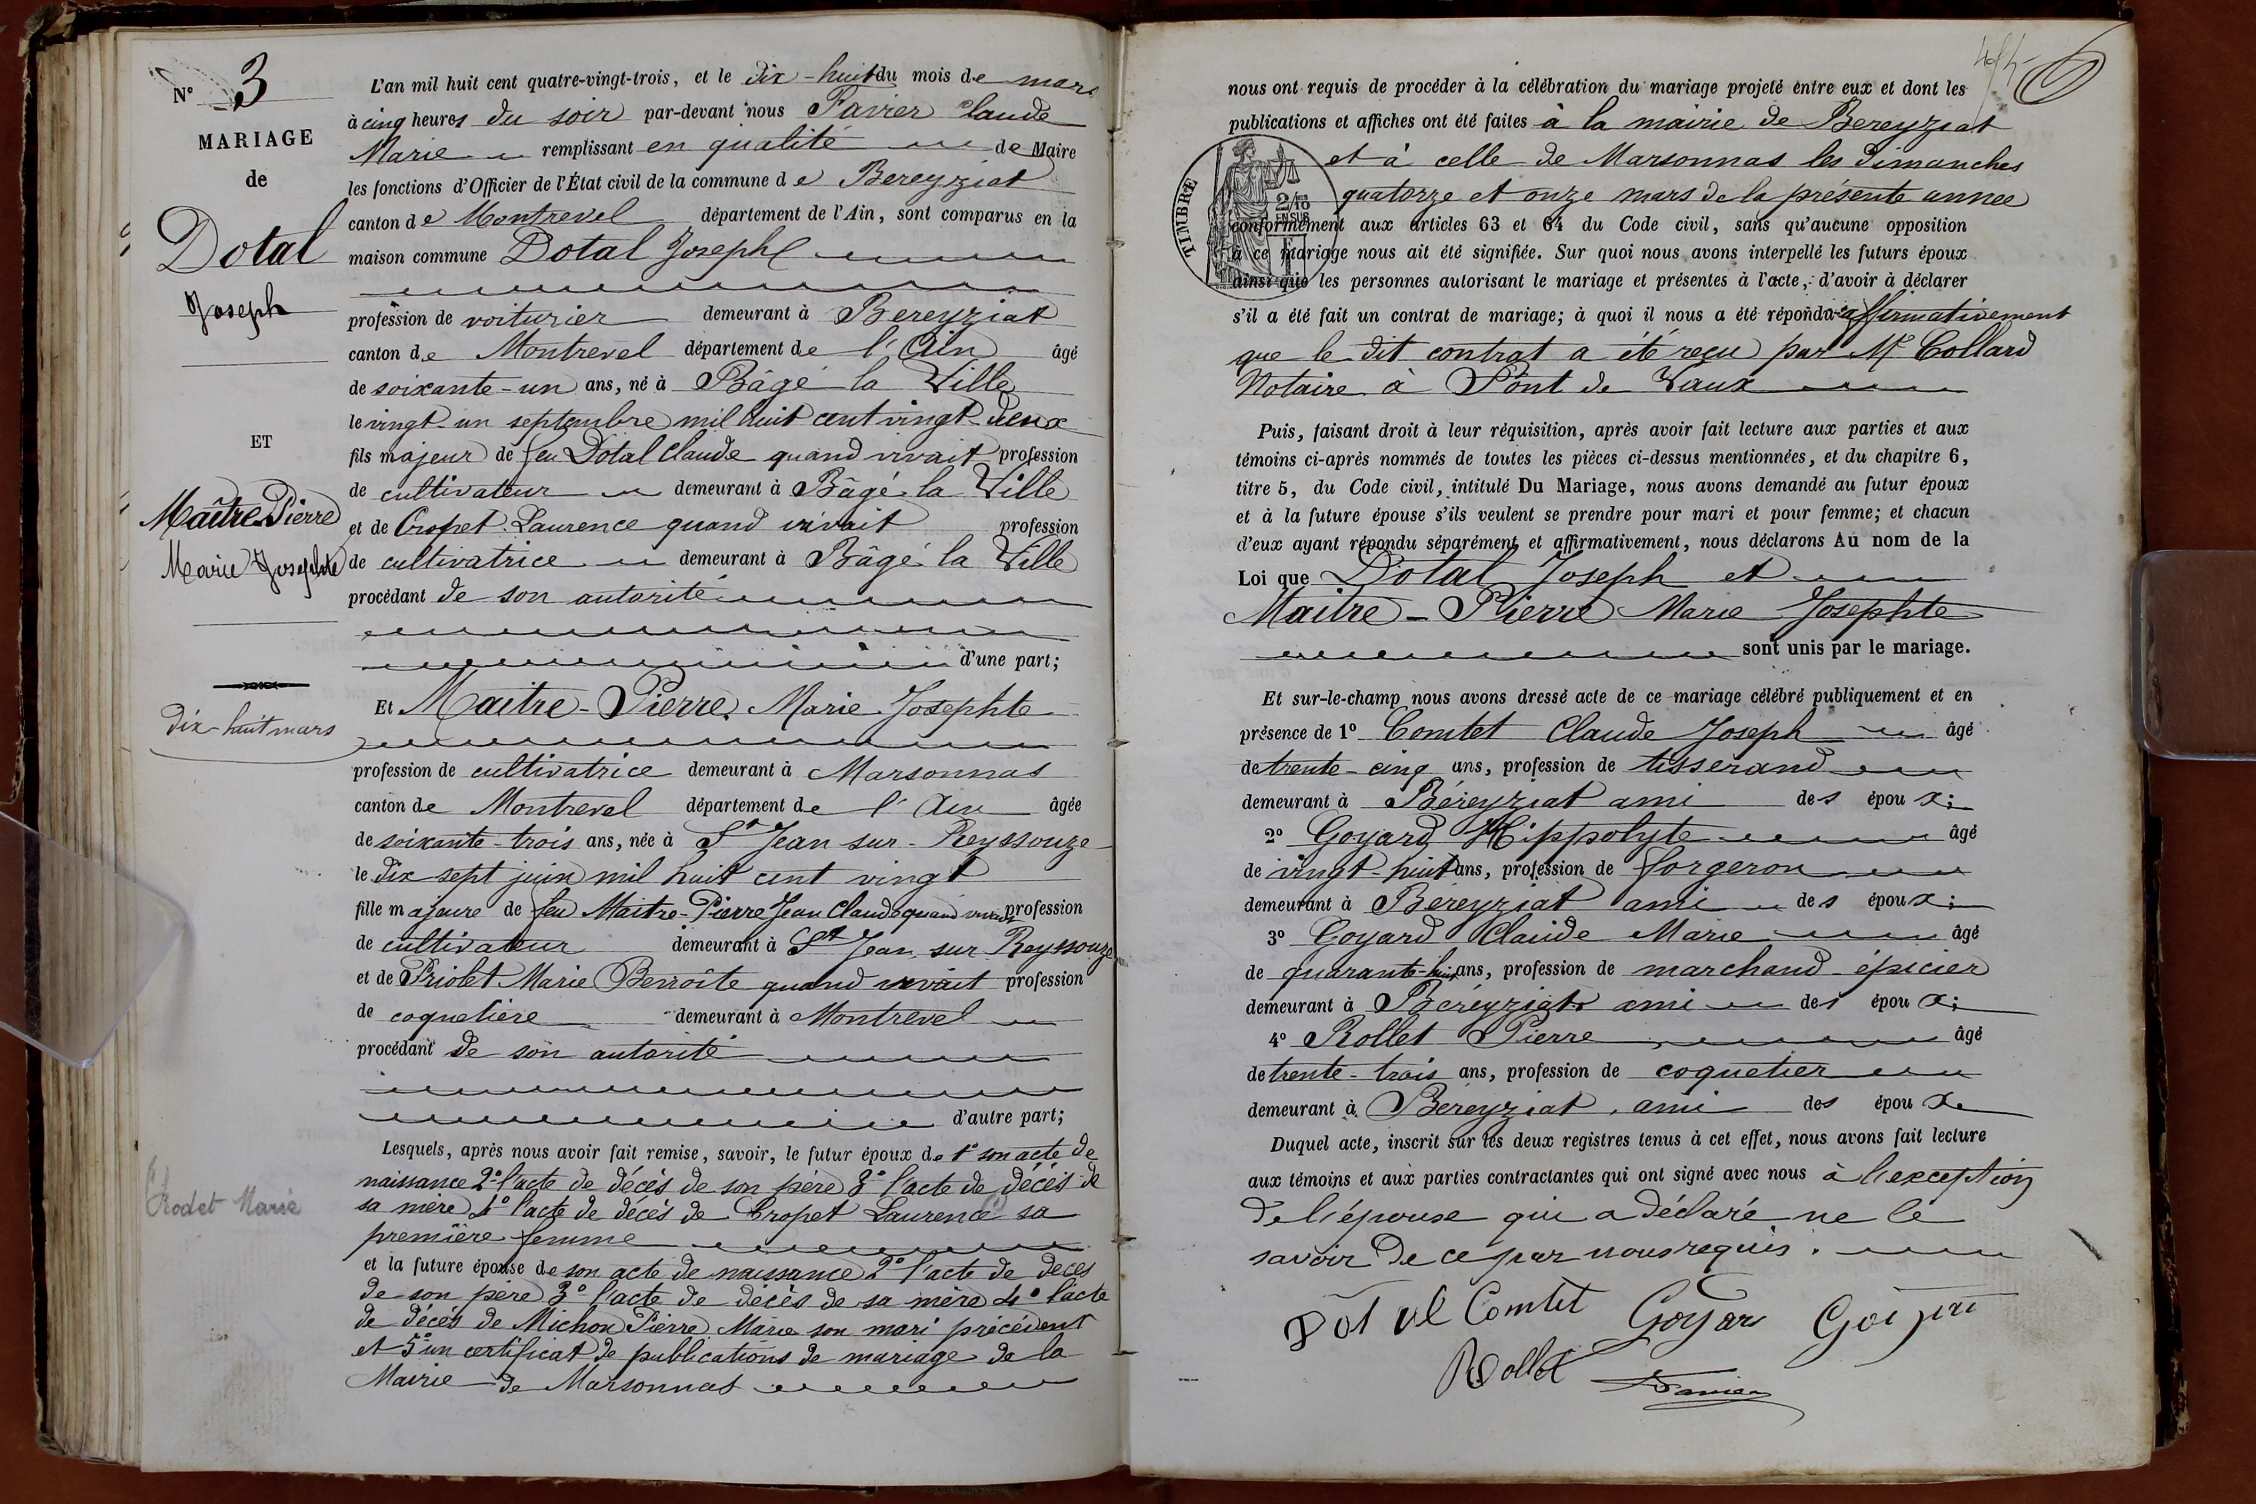 N° 3
MARIAGE
de
Dotal
Joseph
ET
Maître-Pierre
Marie Josephte
dix-huit mars
Rodet Marie
L'an mil huit cent quatre-vingt-trois, et le dix-huit du mois de mars
à cinq heures du soir par-devant nous Favier Claude
Marie remplissant en qualité de Maire
les fonctions d'Officier de l'État civil de la commune de Bereyziat
canton de Montrevel département de l'Ain, sont comparus en la
maison commune Dotal Joseph
profession de voiturier demeurant à Bereyziat
canton de Montrevel département de l'Ain âgé
de soixante-un ans, né à Bâgé la Ville
le vingt-un septembre mil huit cent vingt-deux
fils majeur de feu Dotal Claude quand vivait profession
de cultivateur demeurant à Bâgé la Ville
et de Cropet Laurence quand vivait profession
de cultivatrice demeurant à Bâgé la Ville
procédant de son autorité
d'une part;
Et Maitre-Pierre Marie Josephte
profession de cultivatrice demeurant à Marsonnas
canton de Montrevel département de l'Ain âgée
de soixante-trois ans, née à St Jean sur-Reyssouze
le dix sept juin mil huit cent vingt
fille majeure de feu Maitre-Pierre Jean Claude quand vivait profession
de cultivateur demeurant à St Jean sur Reyssouze
et de Priolet Marie Benroîte quand vivait profession
de coquetière demeurant à Montrevel
procédant de son autorité
d'autre part;
Lesquels, après nous avoir fait remise, savoir, le futur époux de 1° son acte de
naissance 2° l'acte de décès de son père 3° l'acte de décès de
sa mère 4° l'acte de décès de Cropet Laurence sa
première femme
et la future épouse de son acte de naissance 2° l'acte de décès
de son père 3° l'acte de décès de sa mère 4° l'acte
de décès de Michon Pierre Marie son mari précédent
et 5° un certificat de publications de mariage de la
Mairie de Marsonnas
nous ont requis de procéder à la célébration du mariage projeté entre eux et dont les
publications et affiches ont été faites à la mairie de Bereyziat
et à celle de Marsonnas les dimanches
quatorze et onze mars de la présente annee
TIMBRE
2/10
EN SUS
conformément aux articles 63 et 64 du Code civil, sans qu'aucune opposition
à ce mariage nous ait été signifiée. Sur quoi nous avons interpellé les futurs époux
ainsi que les personnes autorisant le mariage et présentes à l'acte, d'avoir à déclarer
s'il a été fait un contrat de mariage; à quoi il nous a été répondu affirmativement
que le dit contrat a été reçu par Me Collard
Notaire à Pont de Vaux
Puis, faisant droit à leur réquisition, après avoir fait lecture aux parties et aux
témoins ci-après nommés de toutes les pièces ci-dessus mentionnées, et du chapitre 6,
titre 5, du Code civil, intitulé Du Mariage, nous avons demandé au futur époux
et à la future épouse s'ils veulent se prendre pour mari et pour femme; et chacun
d'eux ayant répondu séparément et affirmativement, nous déclarons Au nom de la
Loi que Dotal Joseph et
Maitre-Pierre Marie Josephte
sont unis par le mariage.
Et sur-le-champ nous avons dressé acte de ce mariage célébré publiquement et en
présence de 1° Comtet Claude Joseph âgé
de trente-cinq ans, profession de tisserand
demeurant à Béreyziat ami des époux;
2° Goyard Hippolyte âgé
de vingt-huit ans, profession de forgeron
demeurant à Béreyziat ami des époux;
3° Goyard Claude Marie âgé
de quarante-huit ans, profession de marchand-épicier
demeurant à Béréyziat ami des époux;
4° Rollet Pierre âgé
de trente-trois ans, profession de coquetier
demeurant à Béreyziat, ami des époux
Duquel acte, inscrit sur les deux registres tenus à cet effet, nous avons fait lecture
aux témoins et aux parties contractantes qui ont signé avec nous à l'exception
de l'épouse qui a déclaré ne le
savoir de ce par nous requis.
Dotal Comtet Goyard
Rollet Favier